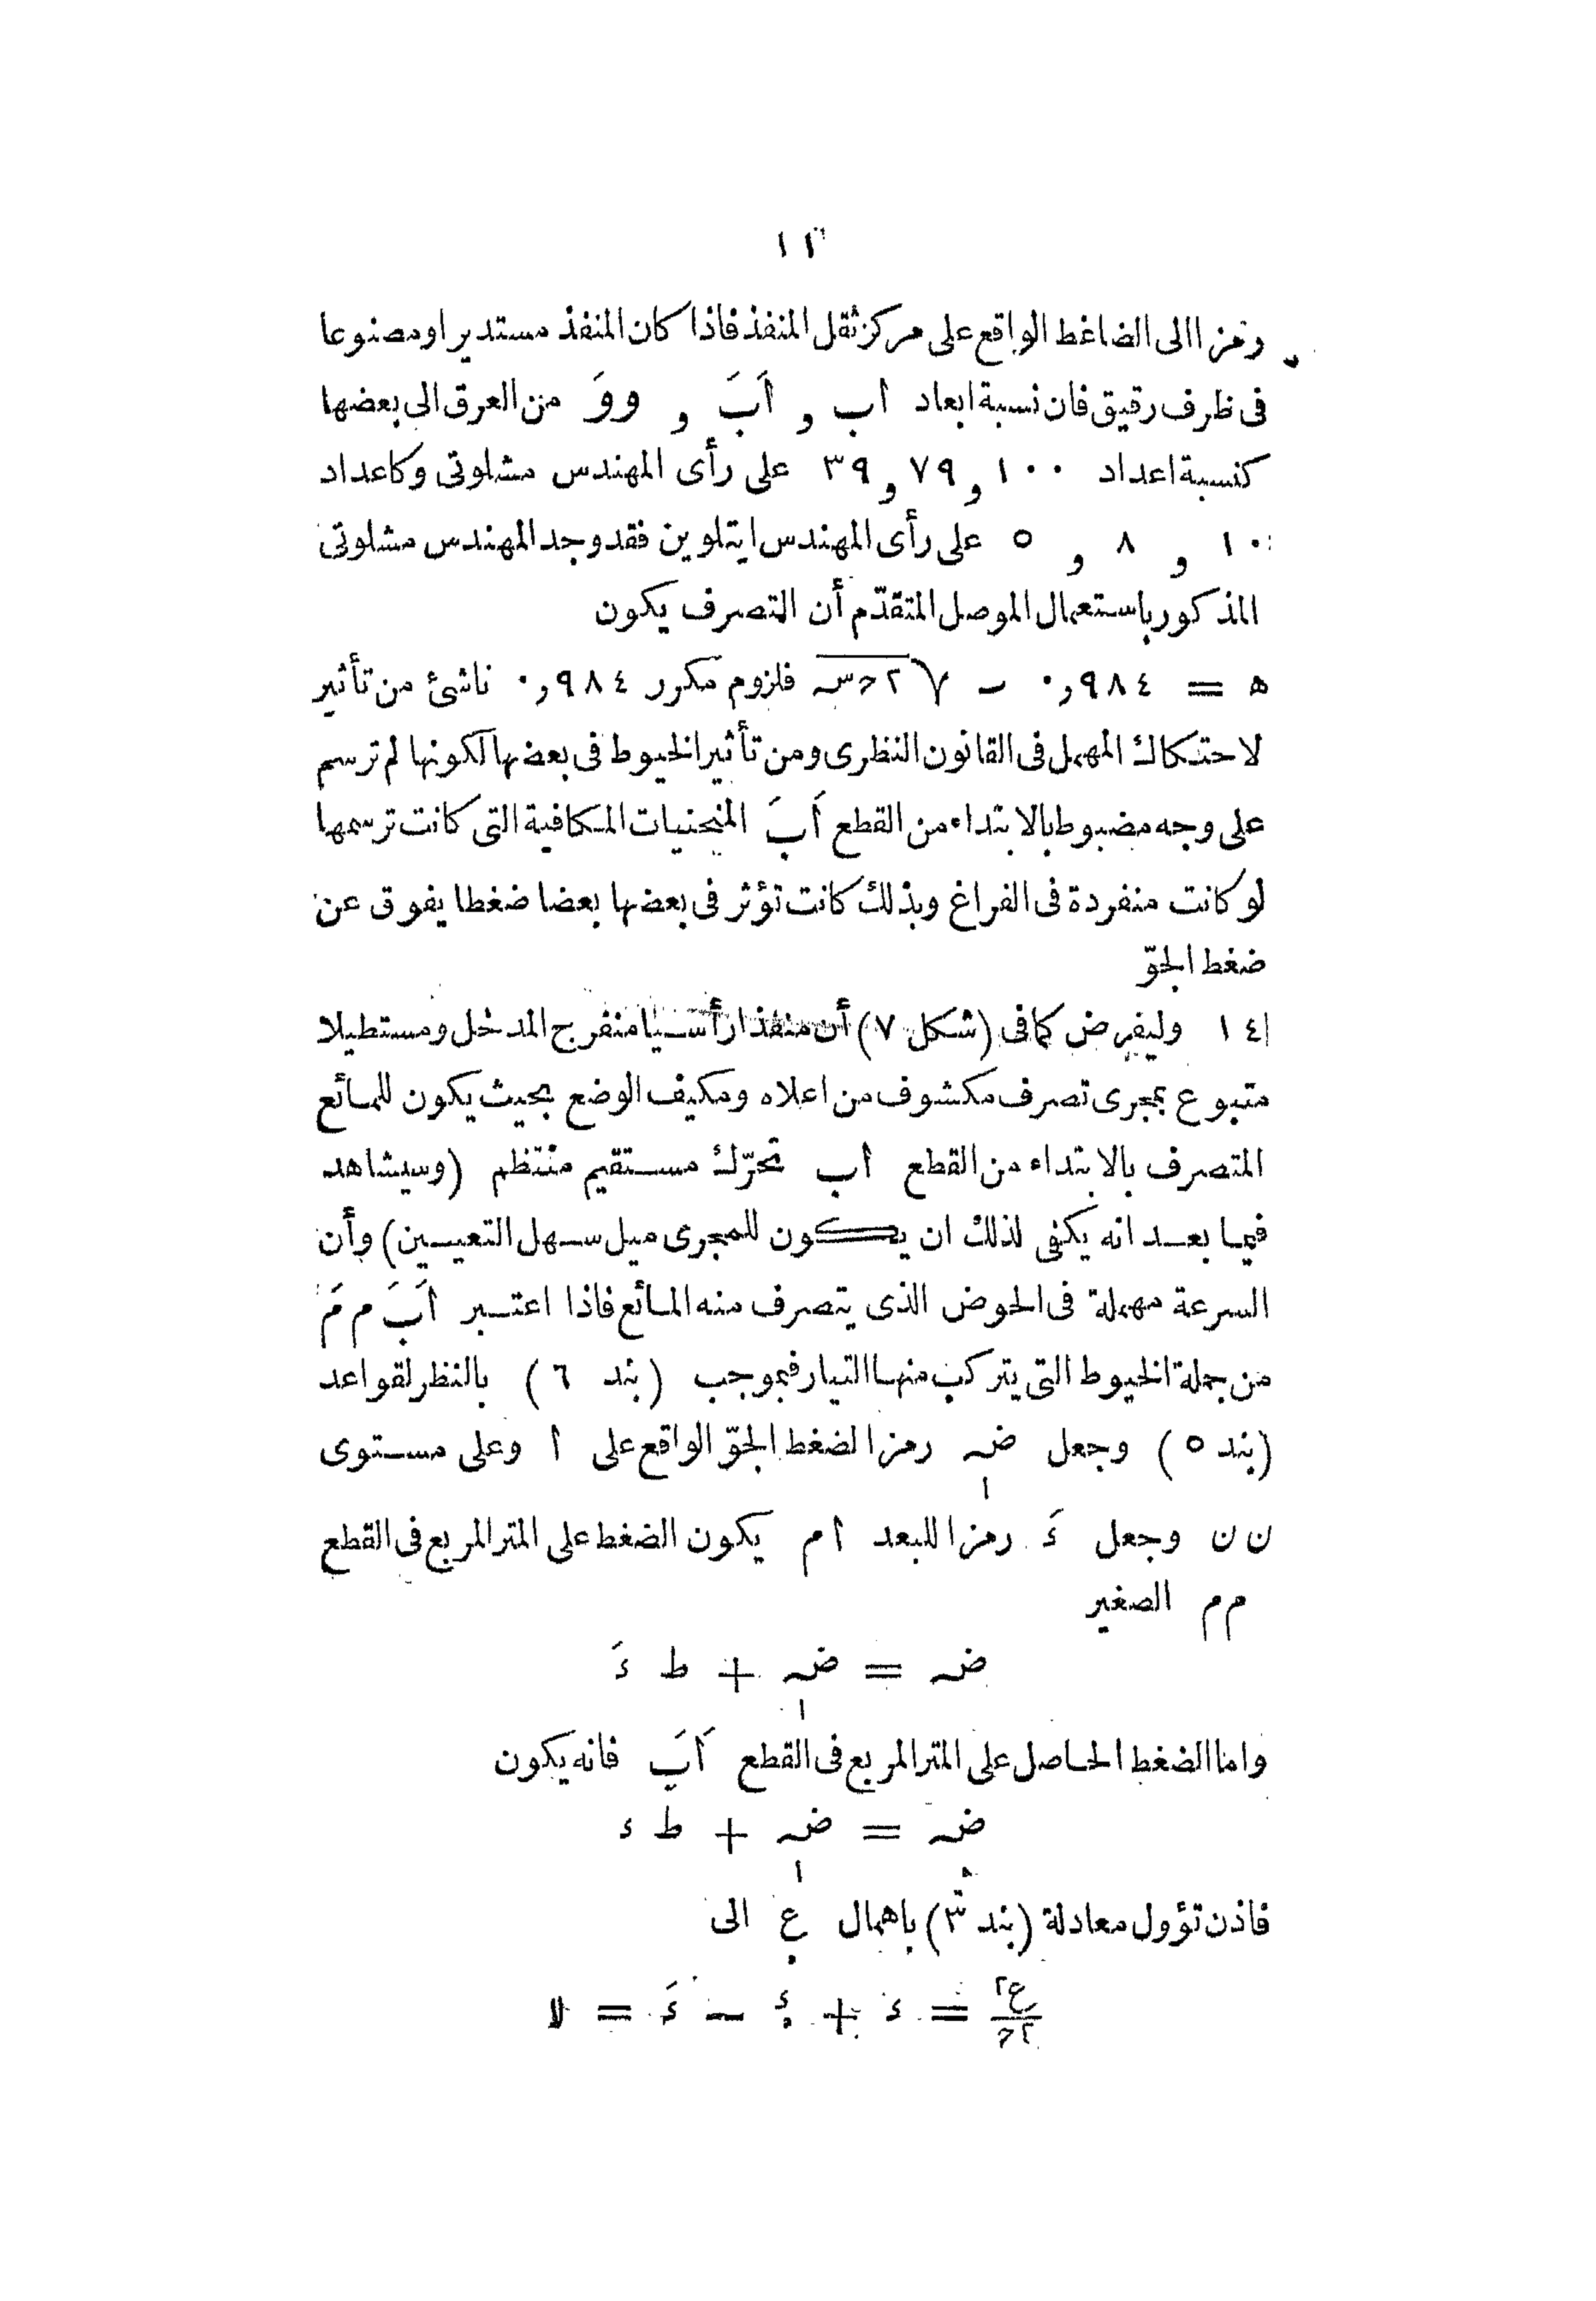 ١٢
رمزا الى الضاغط الواقع على مركز ثقل المنفذ فاذا كان المنفذ مستديرا ومصنوعا
فى ظرف رقيق فان نسبة ابعاد اب و اَبَ و ووَ من العرق الى بعضها
كنسبة اعداد ١٠٠ و ٧٩ و ٣٩ على رأى المهندس مشلوتى وكاعداد
١٠ و ٨ و ٥ على رأى المهندس ايتلوين فقد وجد المهندس مشلوتى
المذكور باستعمال الموصل المتقدّم أن التصرف يكون
ھ = ٩٨٤ر٠ ب √٢حس فلزوم مكرر ٩٨٤ر٠ ناشئ من تأثير
لاحتكاك المهمل فى القانون النظرى ومن تأثير الخيوط فى بعضها لكونها لم ترسم
على وجه مضبوط بالابتداء من القطع اَبَ المنحنيات المكافية التى كانت ترسمها
لو كانت منفردة فى الفراغ وبذلك كانت تؤثر فى بعضها بعضا ضغطا يفوق عن
ضغط الجوّ
١٤ وليفرض كما فى (شكل ٧) أن منفذا رأسيا منفرج المدخل ومستطيلا
متبوع بمجرى تصرف مكشوف من اعلاه ومكيف الوضع بحيث يكون للمائع
المتصرف بالابتداء من القطع اب تحرّك مستقيم منتظم (وسيشاهد
فيما بعد انه يكفى لذلك ان يكون للمجرى ميل سهل التعيين) وأن
السرعة مهملة فى الحوض الذى يتصرف منه المائع فاذا اعتبر اَبَ م مَ
من جملة الخيوط التى يتركب منها التيار فبموجب (بند ٦) بالنظر لقواعد
(بند ٥) وجعل ضہ١ رمزا لضغط الجوّ الواقع على ا وعلى مستوى
ن ن وجعل ءَ رمزا للبعد ام يكون الضغط على المتر المربع فى القطع
م م الصغير
ضہ = ضہ١ + ط ءَ
واما الضغط الحاصل على المتر المربع فى القطع اَبَ فانه يكون
ضہ. = ضہ١ + ط ء
فاذن تؤول معادلة (بند ٣) باهمال ع. الى
ع٢/٢ح = ء + ء. − ءَ = لا